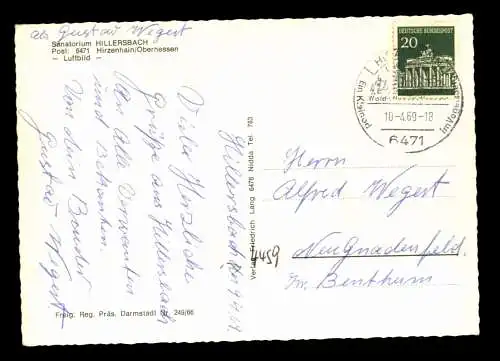 als Gustav Wegert
Sanatorium HILLERSBACH
Post: 6471 Hirzenhain/Oberhessen
– Luftbild –
Hillersbach, den 9.4.69
Viele Herzliche
Grüße aus Hillersbach
von allen Verwanten
und Bekannten.
Von dein Bruder
Gustav Wegert
Freig. Reg. Präs. Darmstadt Nr. 249/66
Verlag Friedrich Lang 6478 Nidda Tel. 780
DEUTSCHE BUNDESPOST
20
Ein Kleinod
Wald
im Vogelsberg
10.-4.69-18
6471
Herrn
Alfred Wegert
4459
Neugnadenfeld.
Im Bentheim.